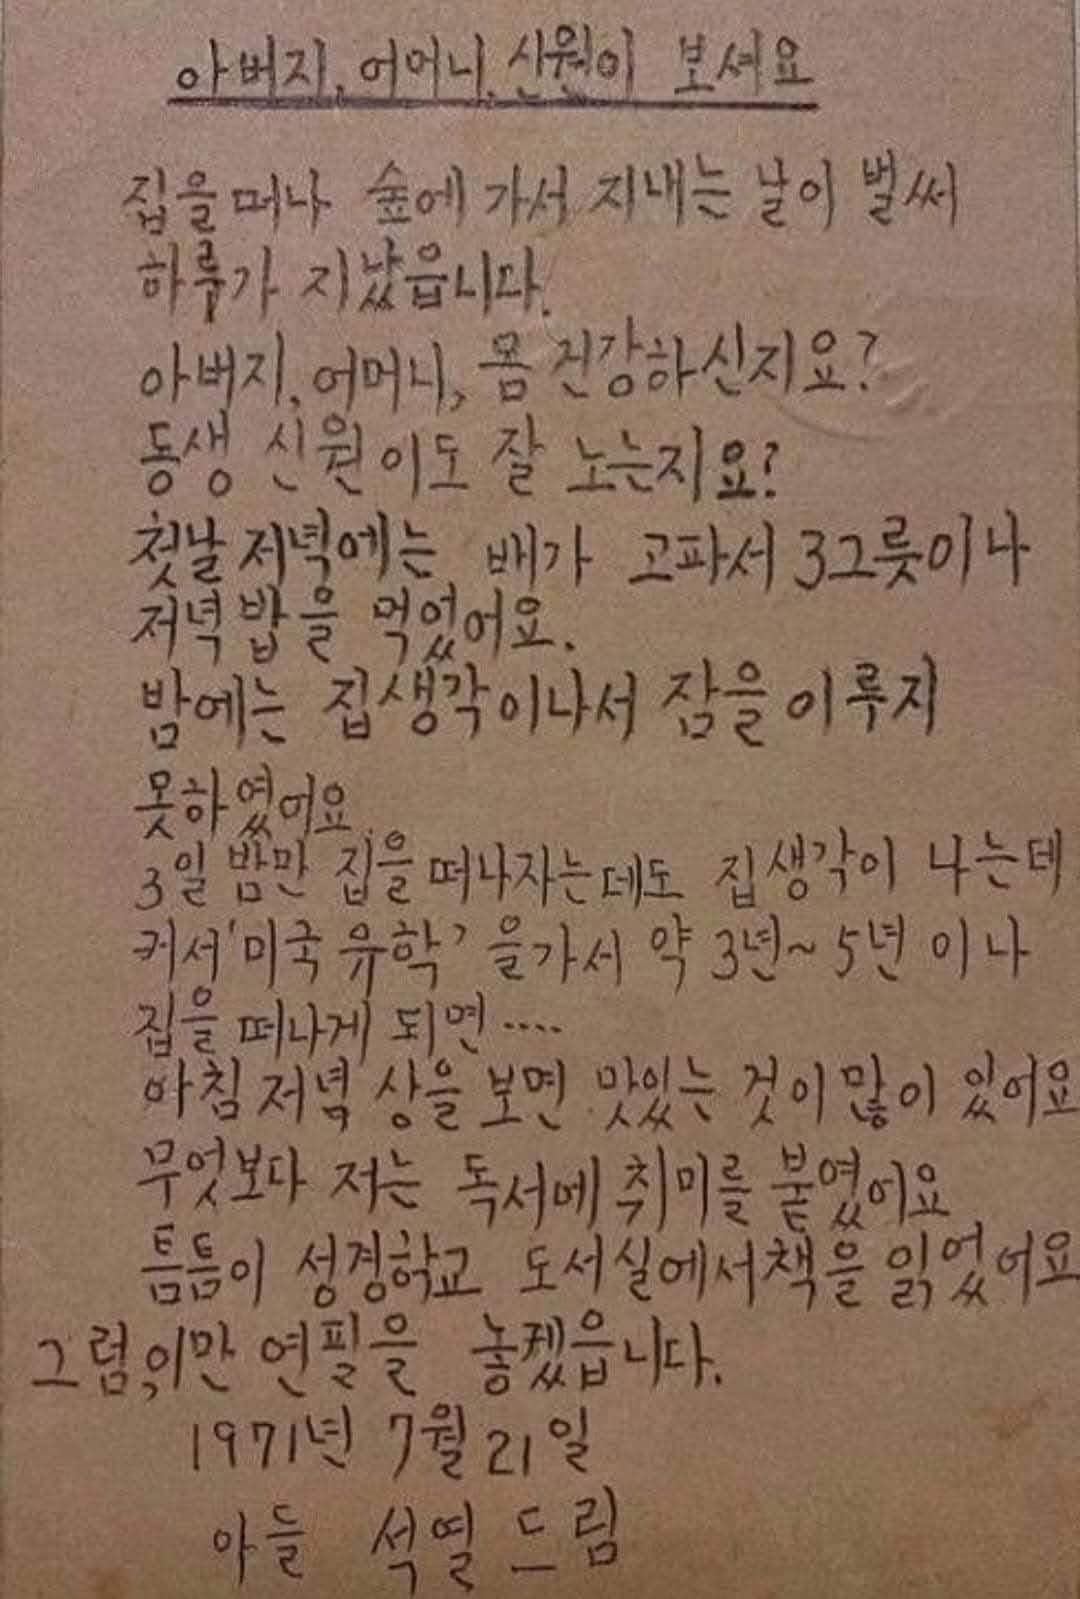 아버지, 어머니, 신원이 보셔요
집을 떠나 숲에 가서 지내는 날이 벌써
하루가 지났읍니다.
아버지, 어머니, 몸 건강하신지요?
동생 신원이도 잘 노는지요?
첫날 저녁에는 배가 고파서 3그릇이나
저녁밥을 먹었어요.
밤에는 집생각이나서 잠을 이루지
못하였어요.
3일 밤만 집을 떠나자는데도 집생각이 나는데
커서 '미국 유학'을가서 약 3년~5년 이나
집을 떠나게 되면····
아침 저녁 상을 보면 맛있는 것이 많이 있어요
무엇보다 저는 독서에 취미를 붙였어요
틈틈이 성경학교 도서실에서 책을 읽었어요
그럼, 이만 연필을 놓겠읍니다.
1971년 7월 21일
아들 석열 드림